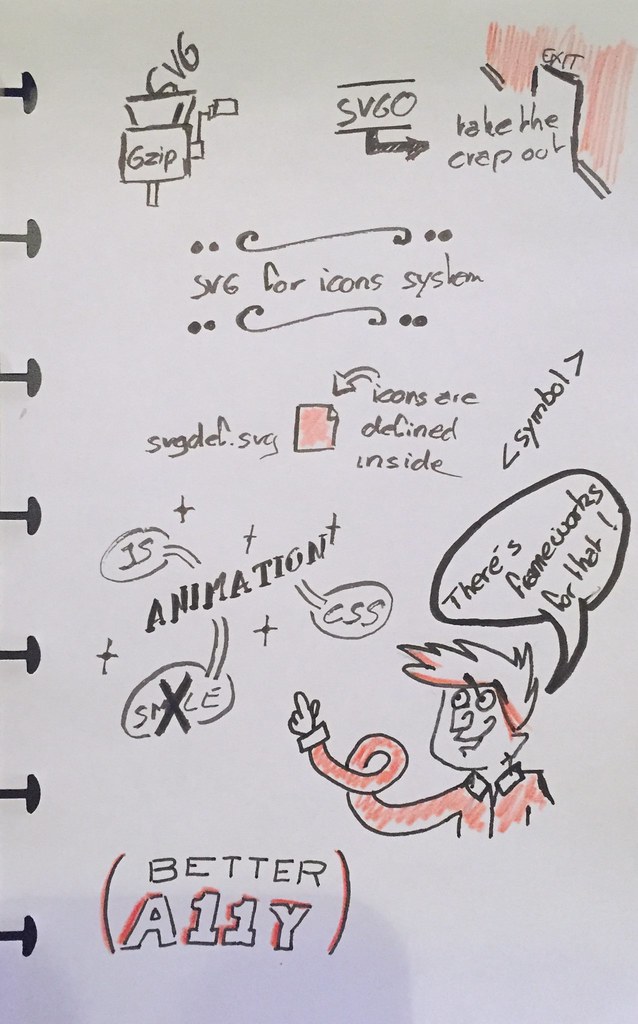 SVG
Gzip
SVGO
EXIT
take the
crap out
SVG for icons system
svgdef.svg
icons are
defined
inside
<symbol>
JS
ANIMATION
CSS
There's
frameworks
for that!
BETTER
A11Y